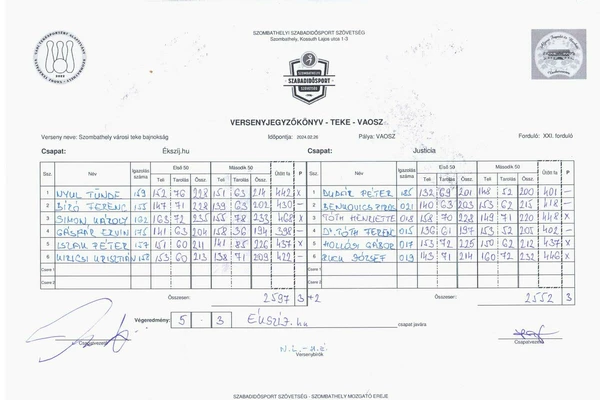 SZOMBATHELYI SZABADIDŐSPORT SZÖVETSÉG
Szombathely, Kossuth Lajos utca 1-3
SZOMBATHELYI
SZABADIDŐSPORT
SZÖVETSÉG
VERSENYJEGYZŐKÖNYV - TEKE - VAOSZ
Verseny neve: Szombathely városi teke bajnokság Időpontja: 2024.02.26 Pálya: VAOSZ Forduló: XXI. forduló
Csapat: Ékszíj.hu Csapat: Justicia
Ssz. Név Igazolás száma Első 50 Második 50 Ütött fa P Ssz. Név Igazolás száma Első 50 Második 50 Ütött fa P
Teli Tarolás Össz. Teli Tarolás Össz. Teli Tarolás Össz. Teli Tarolás Össz.
1 NYUL TÜNDE 159 152 76 228 151 63 214 442 X 1 DUDÁR PÉTER 185 132 69 201 148 52 200 401 —
2 BÍRÓ FERENC 155 147 71 218 139 63 202 430 — 2 140 63 203 153 62 215 418 —
3 SIMON KÁROLY 192 163 72 235 155 78 233 468 X 3 TÓTH HENRIETTE 018 158 70 228 149 71 220 448 X
4 GÁSPÁR ERVIN 175 141 63 204 158 36 194 398 — 4 DR. TÓTH FERENC 015 136 61 197 153 52 205 402 —
5 PÉTER 157 151 60 211 141 85 226 437 X 5 HOLLÓSI GÁBOR 017 153 72 225 150 62 212 437 X
6 KRISZTIÁN 158 153 60 213 138 71 209 422 — 6 JÓZSEF 019 143 71 214 160 72 232 446 X
Csere 1 Csere 1
Csere 2 Csere 2
Összesen: 2597 3 +2 Összesen: 2552 3
Végeredmény: 5 - 3 Ékszíj.hu csapat javára
Csapatvezető Csapatvezető
Versenybírók
SZABADIDŐSPORT SZÖVETSÉG - SZOMBATHELY MOZGATÓ EREJE